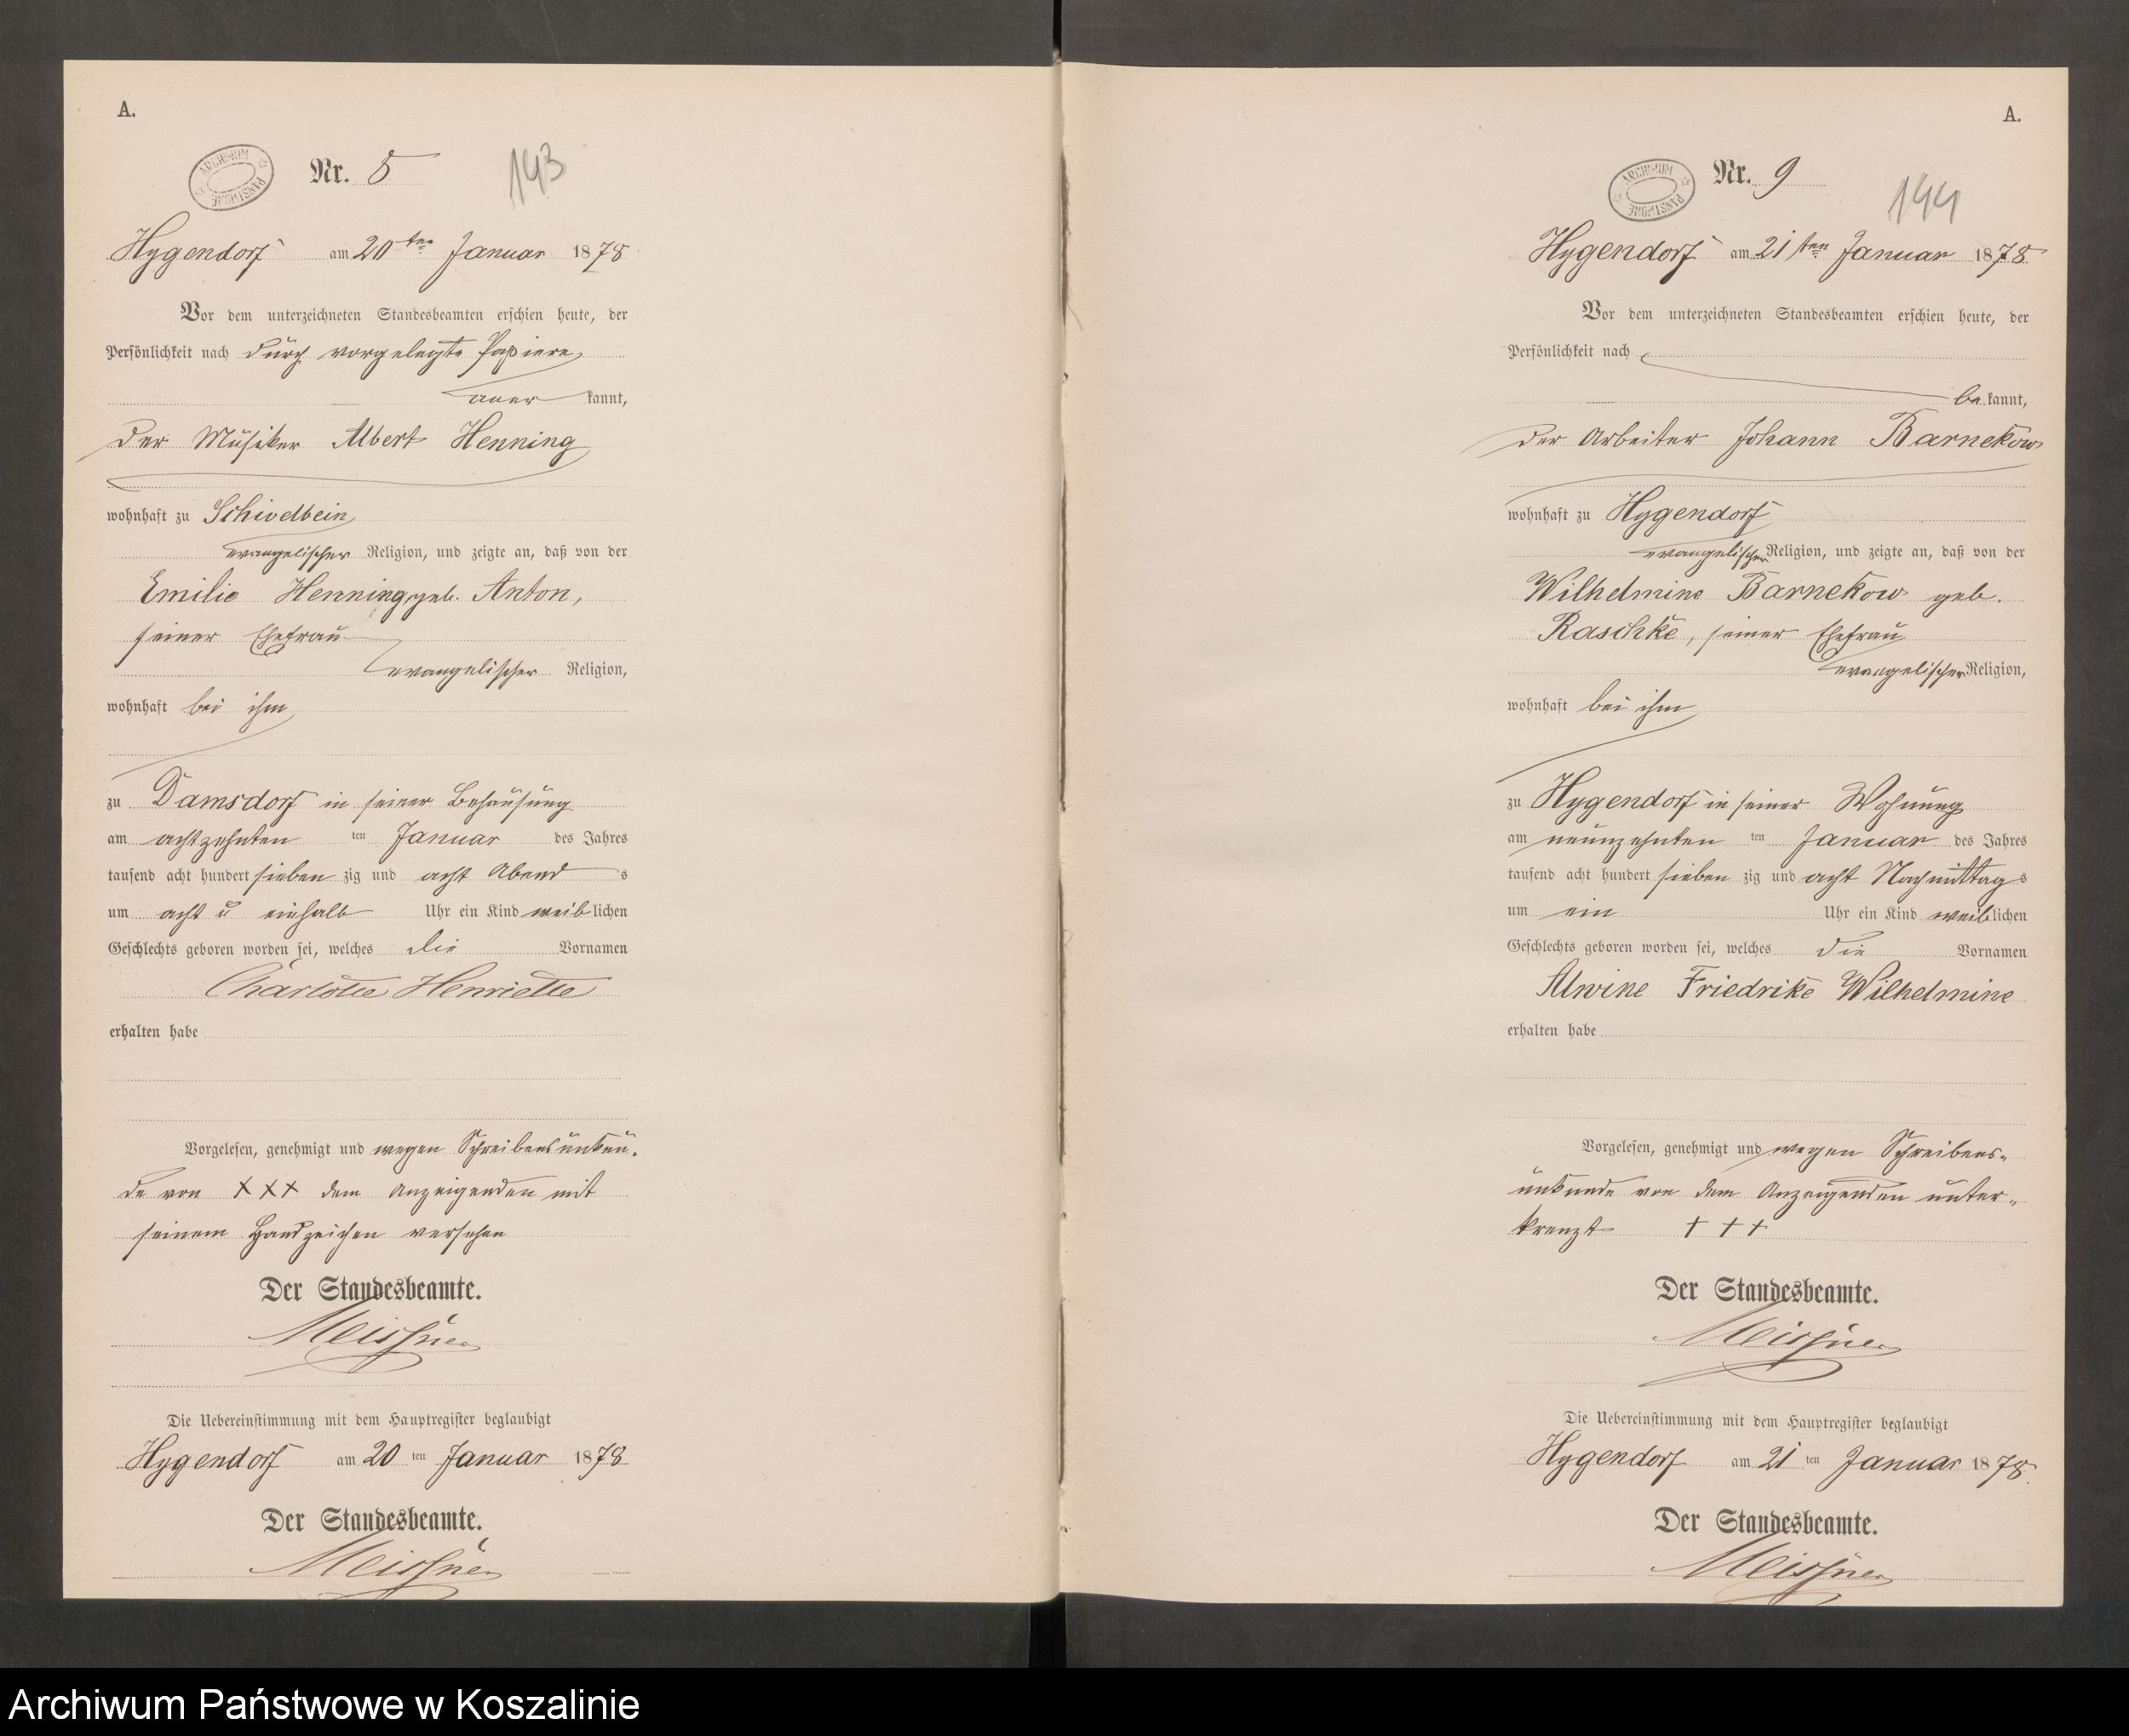 A.
ARCHIWUM PAŃSTWOWE
Nr. 8
143
Hygendorf am 20ten Januar 1878
Vor dem unterzeichneten Standesbeamten erschien heute, der
Persönlichkeit nach durch vorgelegte Papiere
aner kannt,
der Musiker Albert Henning
wohnhaft zu Schivelbein
evangelischer Religion, und zeigte an, daß von der
Emilie Henning geb. Anton,
seiner Ehefrau
evangelischer Religion,
wohnhaft bei ihm
zu Damsdorf in seiner Behausung
am achtzehnten ten Januar des Jahres
tausend acht hundert sieben zig und acht Abend s
um acht u einhalb Uhr ein Kind weib lichen
Geschlechts geboren worden sei, welches die Vornamen
Charlotte Henriette
erhalten habe
Vorgelesen, genehmigt und wegen Schreibensunkun-
de von XXX dem Anzeigenden mit
seinem Handzeichen versehen
Der Standesbeamte.
Meissner
Die Uebereinstimmung mit dem Hauptregister beglaubigt
Hygendorf am 20 ten Januar 1878
Der Standesbeamte.
Meissner
A.
ARCHIWUM PAŃSTWOWE
Nr. 9
144
Hygendorf am 21ten Januar 1878
Vor dem unterzeichneten Standesbeamten erschien heute, der
Persönlichkeit nach
be kannt,
der Arbeiter Johann Barnekow
wohnhaft zu Hygendorf
evangelischer Religion, und zeigte an, daß von der
Wilhelmine Barnekow geb.
Raschke, seiner Ehefrau
evangelischer Religion,
wohnhaft bei ihm
zu Hygendorf in seiner Wohnung
am neunzehnten ten Januar des Jahres
tausend acht hundert sieben zig und acht Nachmittag s
um ein Uhr ein Kind weib lichen
Geschlechts geboren worden sei, welches die Vornamen
Alwine Friedrike Wilhelmine
erhalten habe
Vorgelesen, genehmigt und wegen Schreibens-
unkunde von dem Anzeigenden unter-
kreuzt + + +
Der Standesbeamte.
Meissner
Die Uebereinstimmung mit dem Hauptregister beglaubigt
Hygendorf am 21 ten Januar 1878.
Der Standesbeamte.
Meissner
Archiwum Państwowe w Koszalinie